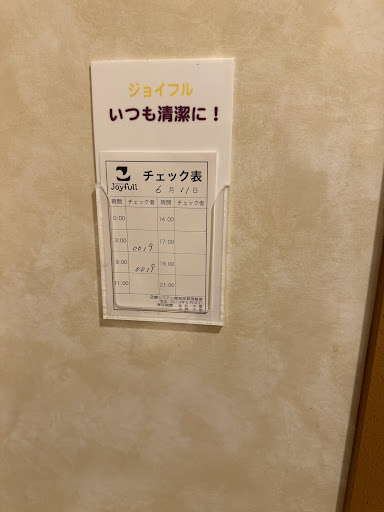 ジョイフル
いつも清潔に!
Joyfull
チェック表
6月11日
時間 チェック者 時間 チェック者
0:00 14:00
3:00 0019 17:00
9:00 0019 19:00
11:00 21:00